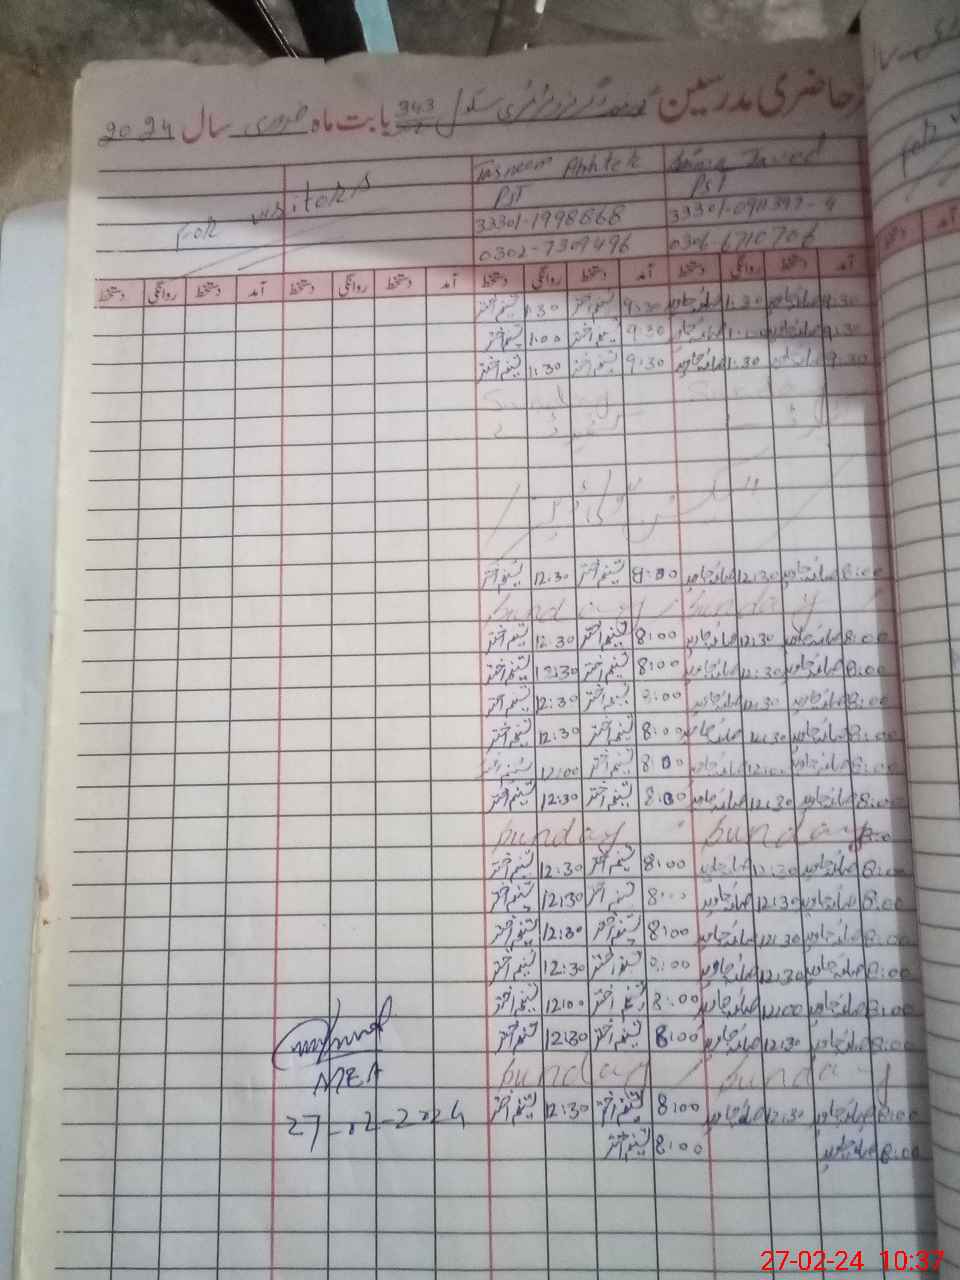 حاضری مدرسین گورنمنٹ گرلز پرائمری سکول 943 بابت ماہ فروری سال 2024
For visitors Tasneem Akhter Javed
PST PST
33301-1998868
0302-7309496 0306-6710706
آمد دستخط روانگی دستخط آمد دستخط روانگی دستخط آمد دستخط روانگی دستخط آمد دستخط روانگی دستخط
9:30 1:30 9:30 تسنیم اختر 1:30 تسنیم اختر
9:30 9:30 تسنیم اختر 1:00 تسنیم اختر
9:30 1:30 9:30 تسنیم اختر 1:30 تسنیم اختر
Sunday Sunday
8:00 صائمہ جاوید 12:30 صائمہ جاوید 8:00 تسنیم اختر 12:30 تسنیم اختر
Sunday Sunday
8:00 صائمہ جاوید 12:30 صائمہ جاوید 8:00 تسنیم اختر 12:30 تسنیم اختر
8:00 صائمہ جاوید 12:30 صائمہ جاوید 8:00 تسنیم اختر 12:30 تسنیم اختر
8:00 صائمہ جاوید 12:30 صائمہ جاوید 8:00 تسنیم اختر 12:30 تسنیم اختر
8:00 صائمہ جاوید 12:30 صائمہ جاوید 8:00 تسنیم اختر 12:30 تسنیم اختر
8:00 صائمہ جاوید 12:00 صائمہ جاوید 8:00 تسنیم اختر 12:00 تسنیم اختر
8:00 صائمہ جاوید 12:30 صائمہ جاوید 8:00 تسنیم اختر 12:30 تسنیم اختر
Sunday Sunday
8:00 صائمہ جاوید 12:30 صائمہ جاوید 8:00 تسنیم اختر 12:30 تسنیم اختر
8:00 صائمہ جاوید 12:30 صائمہ جاوید 8:00 تسنیم اختر 12:30 تسنیم اختر
8:00 صائمہ جاوید 12:30 صائمہ جاوید 8:00 تسنیم اختر 12:30 تسنیم اختر
8:00 صائمہ جاوید 12:30 صائمہ جاوید 8:00 تسنیم اختر 12:30 تسنیم اختر
8:00 صائمہ جاوید 12:00 صائمہ جاوید 8:00 تسنیم اختر 12:00 تسنیم اختر
8:00 صائمہ جاوید 12:30 صائمہ جاوید 8:00 تسنیم اختر 12:30 تسنیم اختر
Sunday Sunday
MEA
8:00 صائمہ جاوید 12:30 صائمہ جاوید 8:00 تسنیم اختر 12:30 تسنیم اختر
27-02-2024
8:00 صائمہ جاوید 8:00 تسنیم اختر
27-02-24 10:37